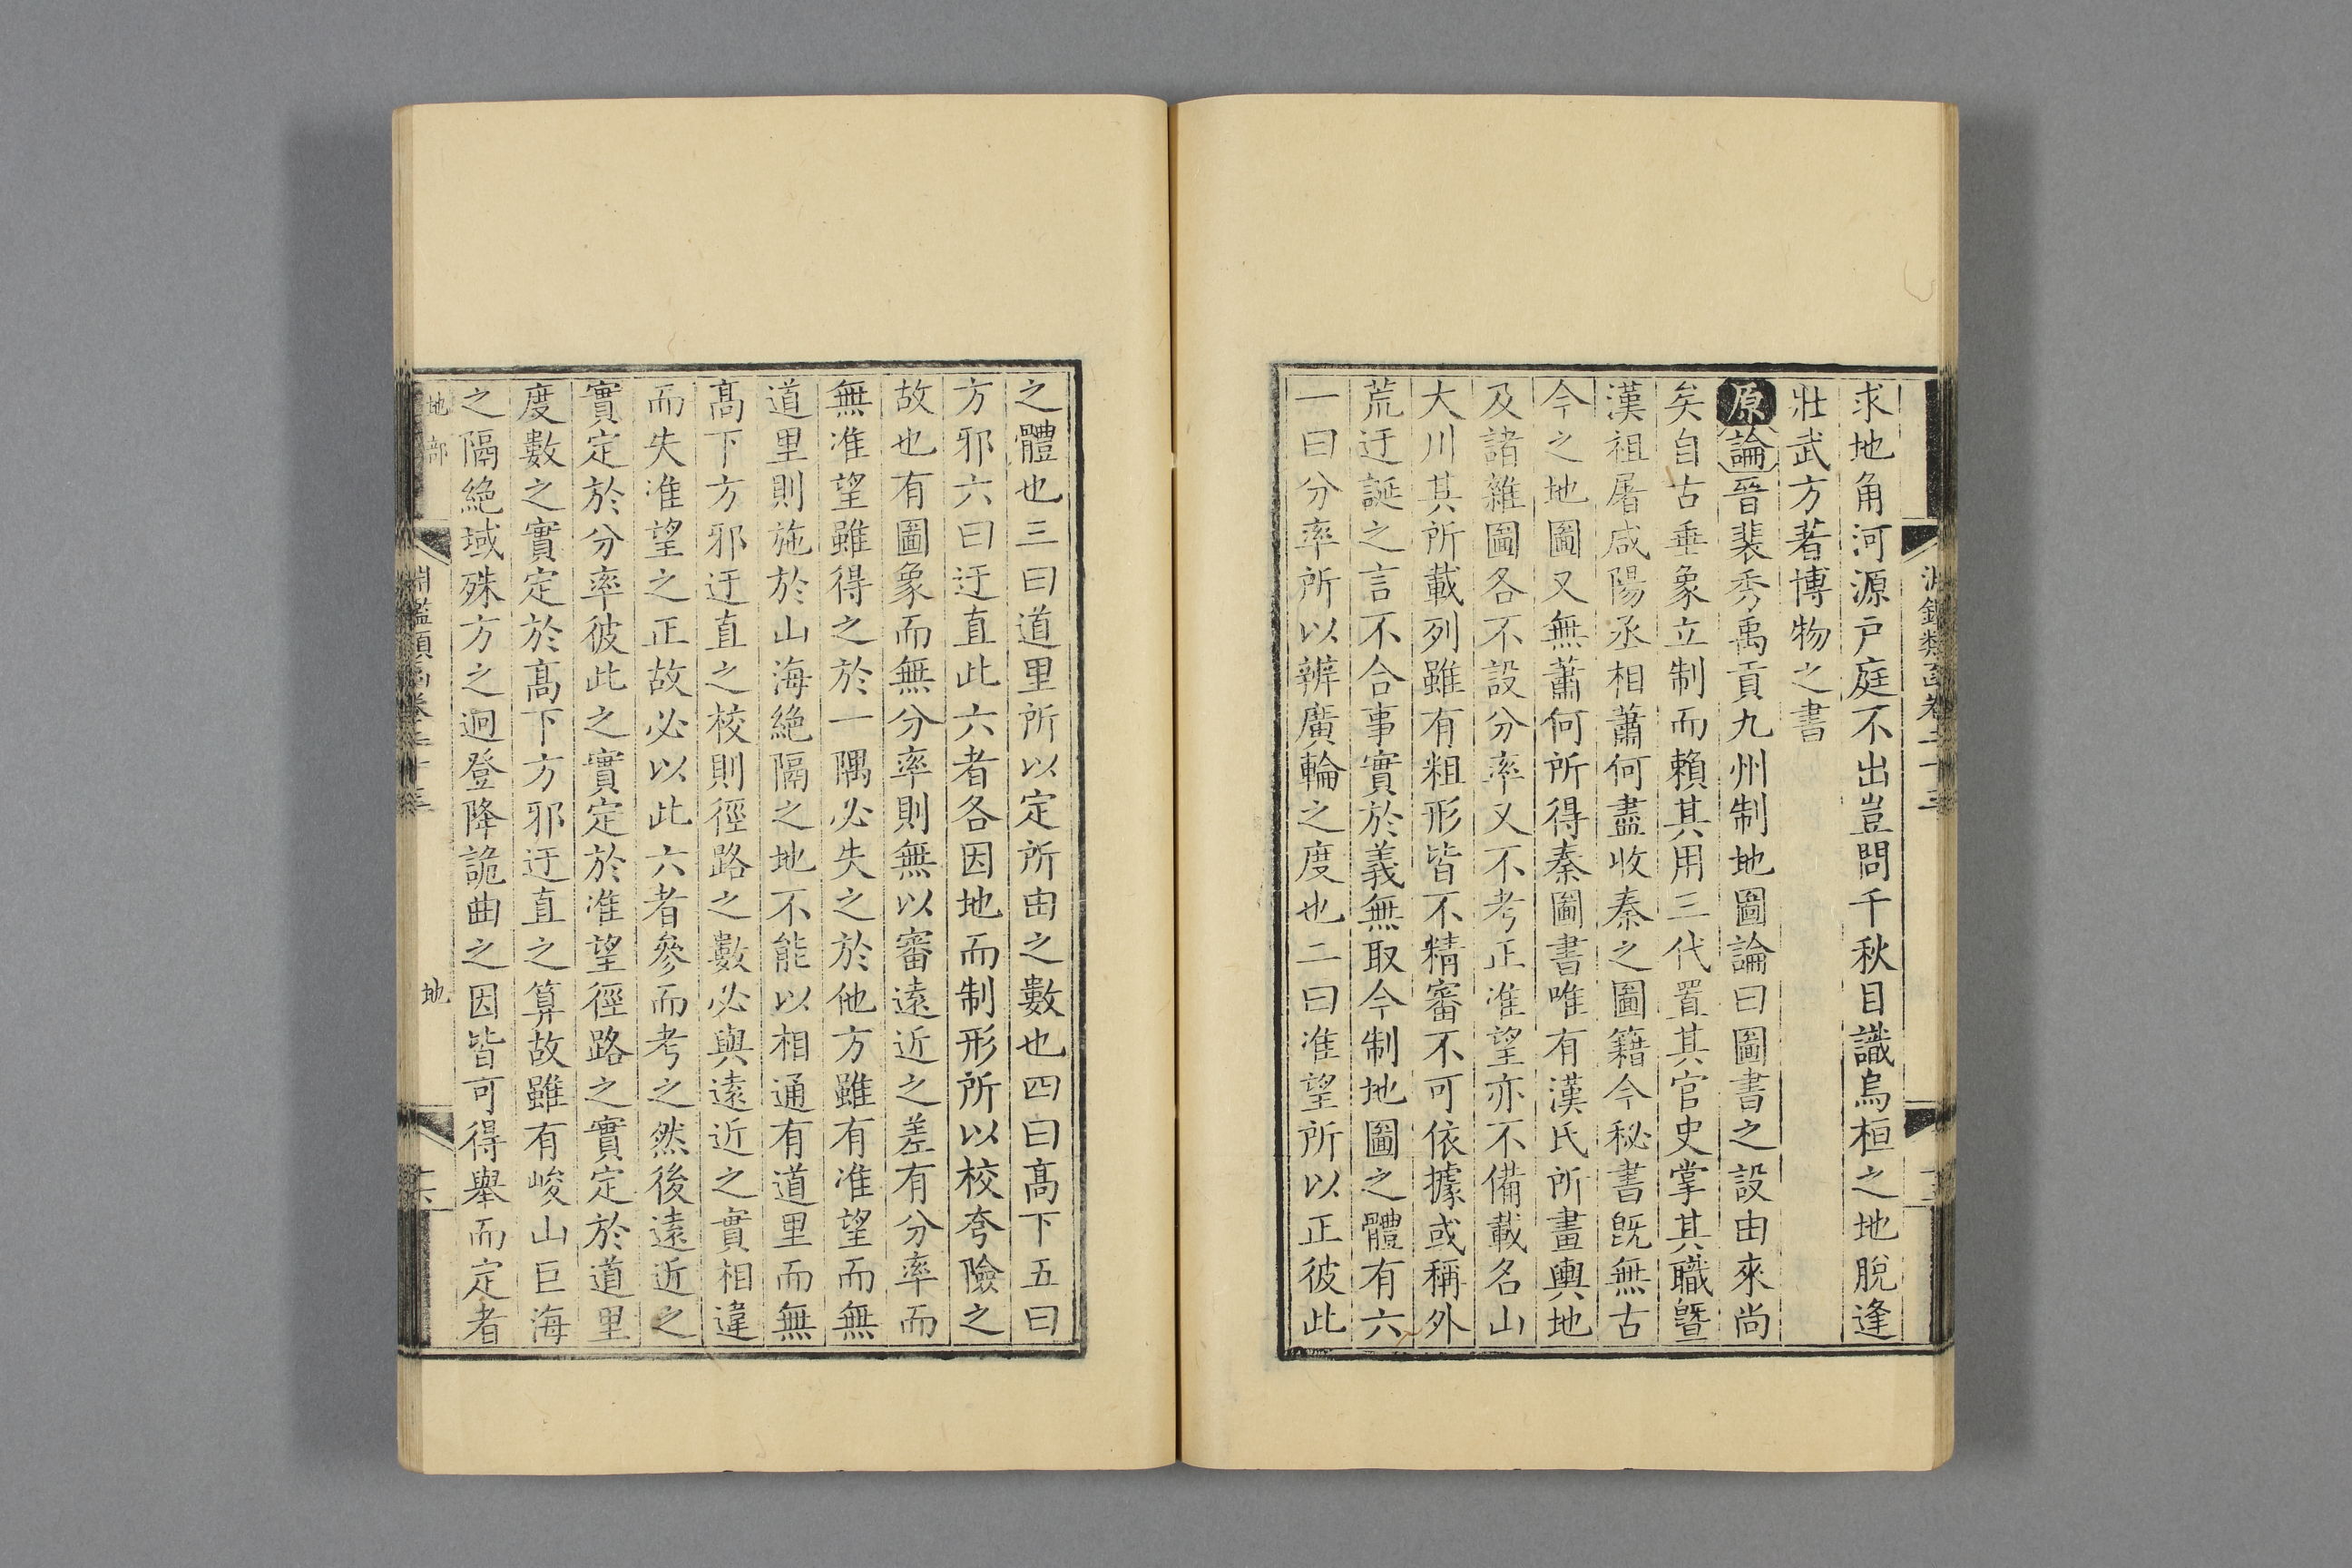 求地角河源戶庭不出豈問千秋目識烏桓之地脫逢
壯武方著博物之書
原論晉裴秀禹貢九州制地圖論曰圖書之設由來尚
矣自古垂象立制而賴其用三代置其官史掌其職曁
漢祖屠咸陽丞相蕭何盡收秦之圖籍今秘書旣無古
今之地圖又無蕭何所得秦圖書唯有漢氏所畫輿地
及諸雜圖各不設分率又不考正准望亦不備載名山
大川其所載列雖有粗形皆不精審不可依據或稱外
荒迂誕之言不合事實於義無取今制地圖之體有六
一曰分率所以辨廣輪之度也二曰准望所以正彼此
之體也三曰道里所以定所由之數也四曰髙下五曰
方邪六曰迂直此六者各因地而制形所以校夸險之
故也有圖象而無分率則無以審遠近之差有分率而
無准望雖得之於一隅必失之於他方雖有准望而無
道里則施於山海絶隔之地不能以相通有道里而無
髙下方邪迂直之校則徑路之數必與遠近之實相違
而失准望之正故必以此六者參而考之然後遠近之
實定於分率彼此之實定於准望徑路之實定於道里
度數之實定於髙下方邪迂直之算故雖有峻山巨海
之隔絶域殊方之迥登降詭曲之因皆可得舉而定者
地部
淵鑑類函卷二十三
地